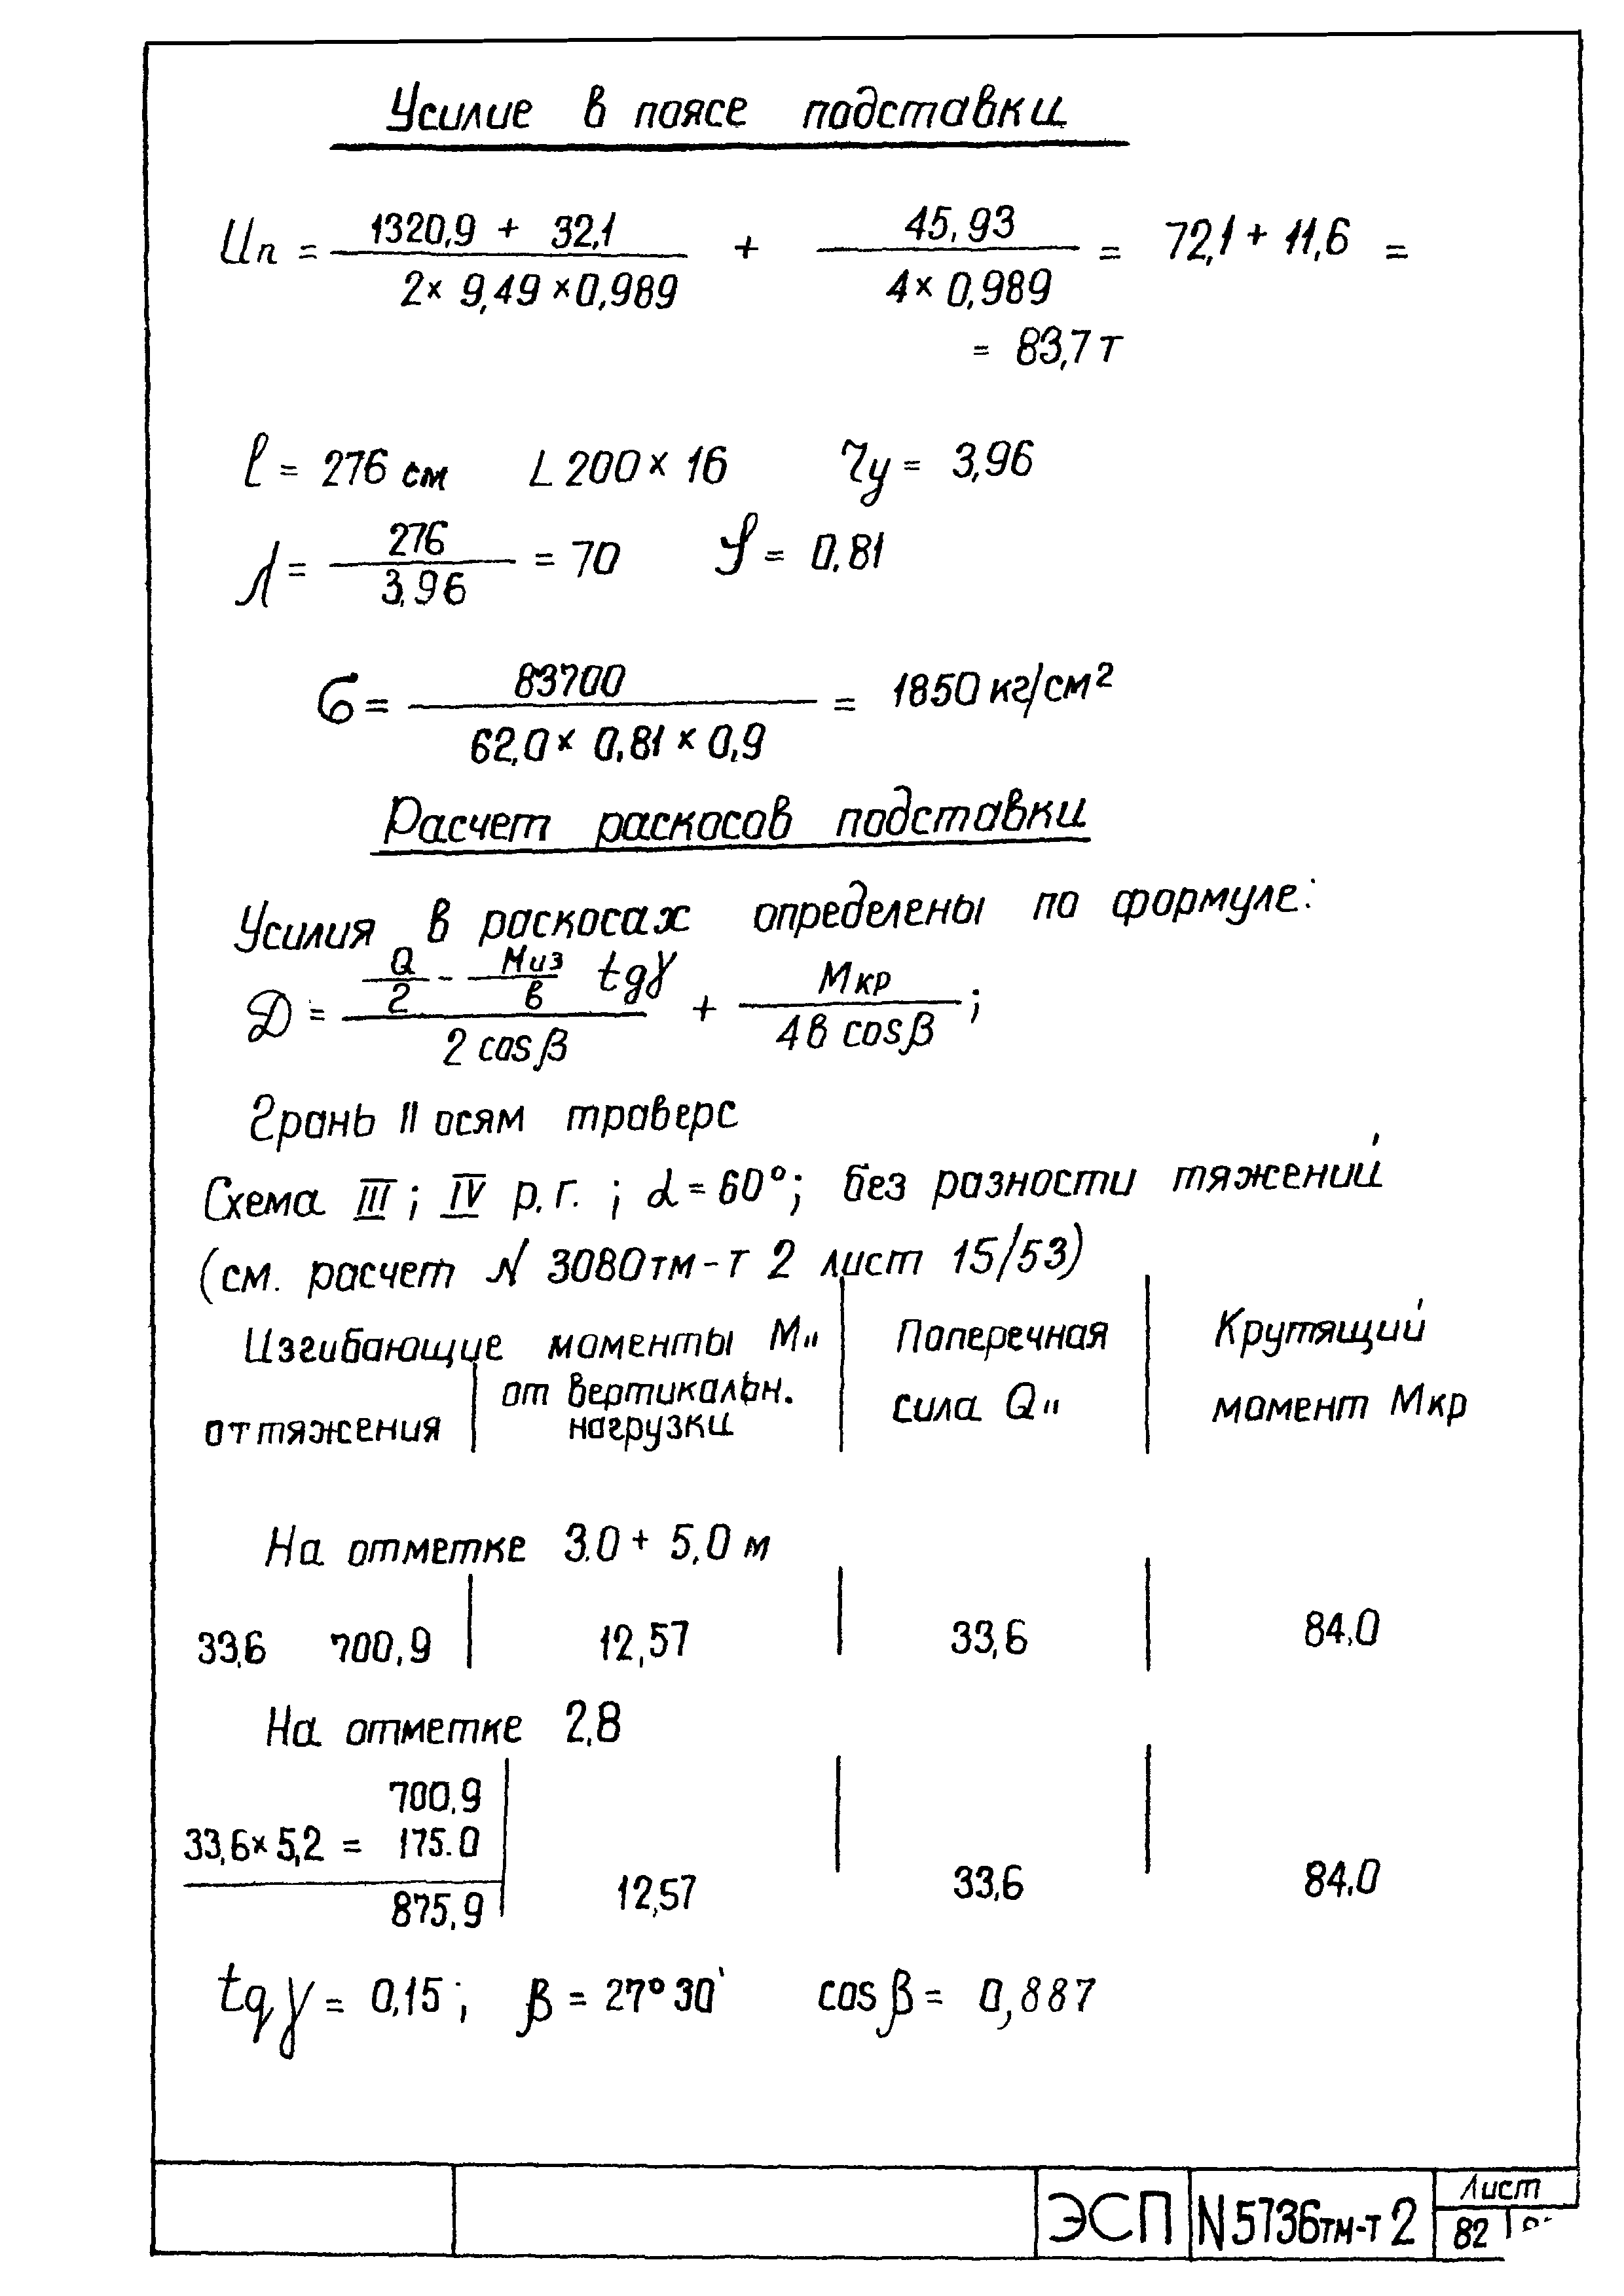 Усилие в поясе подставки
Uп = (1320,9 + 32,1) / (2× 9,49 ×0,989) + 45,93 / (4× 0,989) = 72,1 + 11,6 =
= 83,7 т
ℓ = 276 см L 200× 16 ry = 3,96
λ = 276 / 3,96 = 70 φ = 0,81
σ = 83700 / (62,0× 0,81 × 0,9) = 1850 кг/см²
Расчет раскосов подставки
Усилия в раскосах определены по формуле:
D = (Q/2 - Mиз/в tgγ) / (2 cosβ) + Мкр / (4в cosβ) ;
Грань || осям траверс
Схема III ; IV р.г. ; α = 60°; без разности тяжений
(см. расчет N 3080тм-т 2 лист 15/53)
Изгибающие моменты М"
Поперечная
Крутящий
от тяжения
от вертикальн.
нагрузки
сила Q"
момент Мкр
На отметке 3.0 + 5,0 м
33,6 700,9 12,57 33,6 84.0
На отметке 2,8
700,9
33,6× 5,2 = 175.0
875,9 12,57 33,6 84.0
tqγ = 0,15 ; β = 27°30' cosβ = 0,887
ЭСП N5736тм-т 2
Лист
82